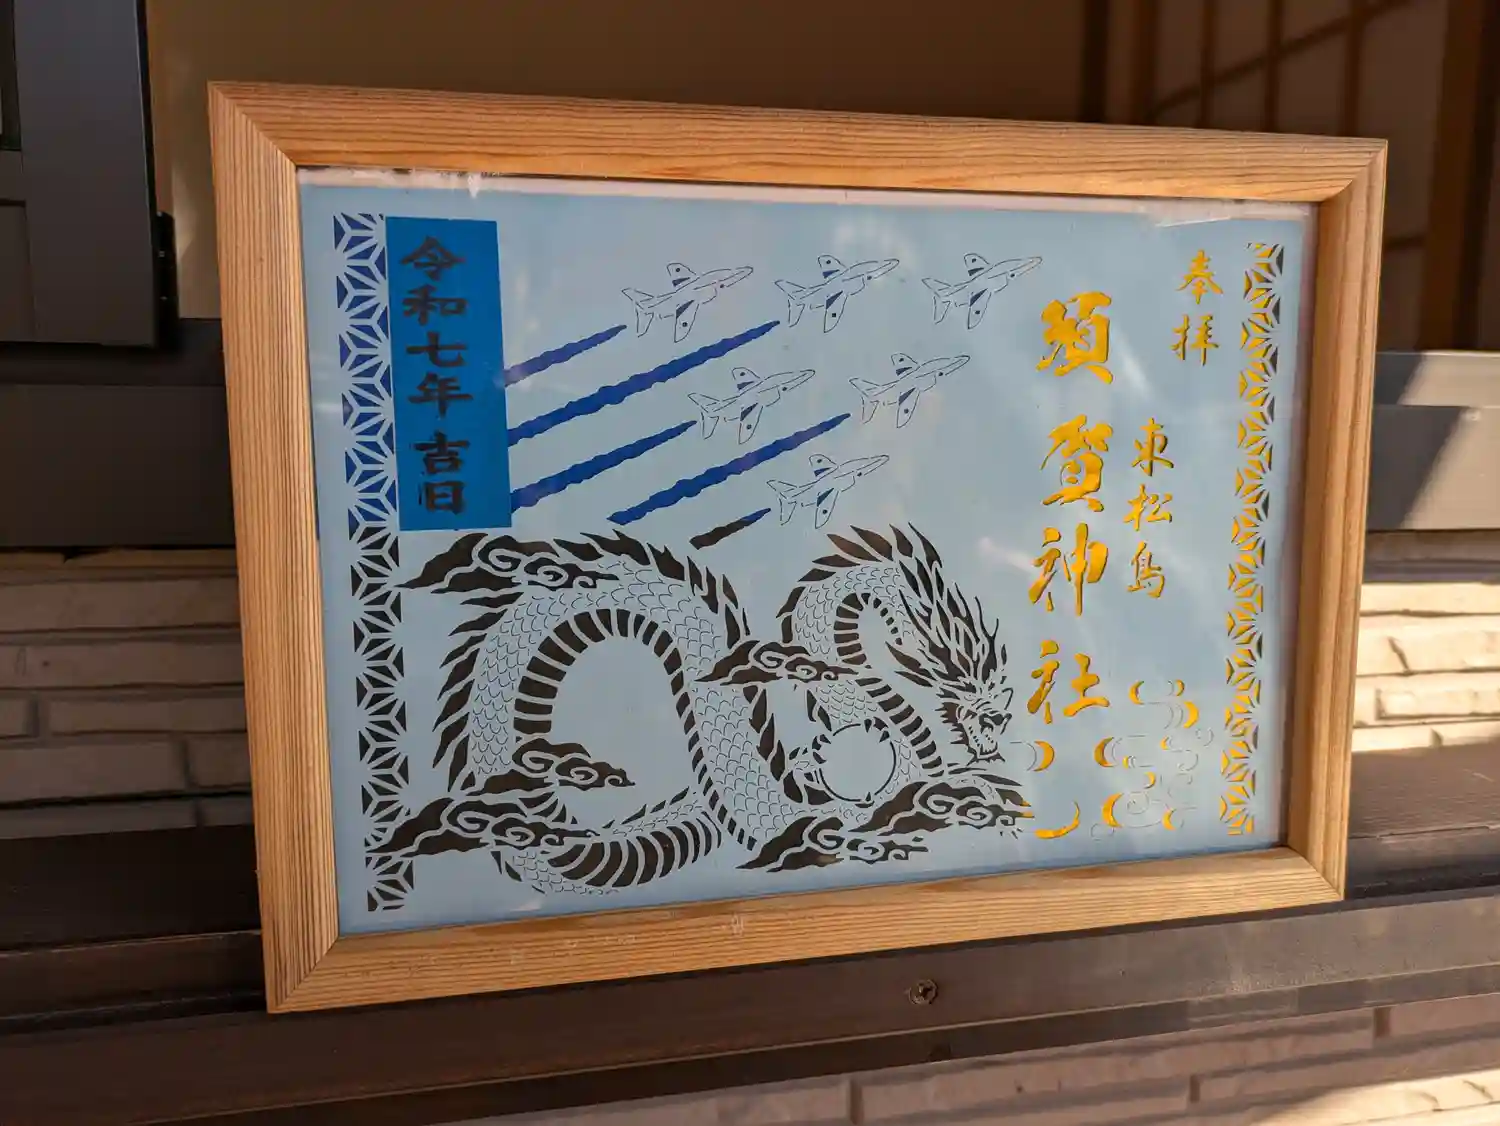 奉拝
東松島
須賀神社
令和七年吉日